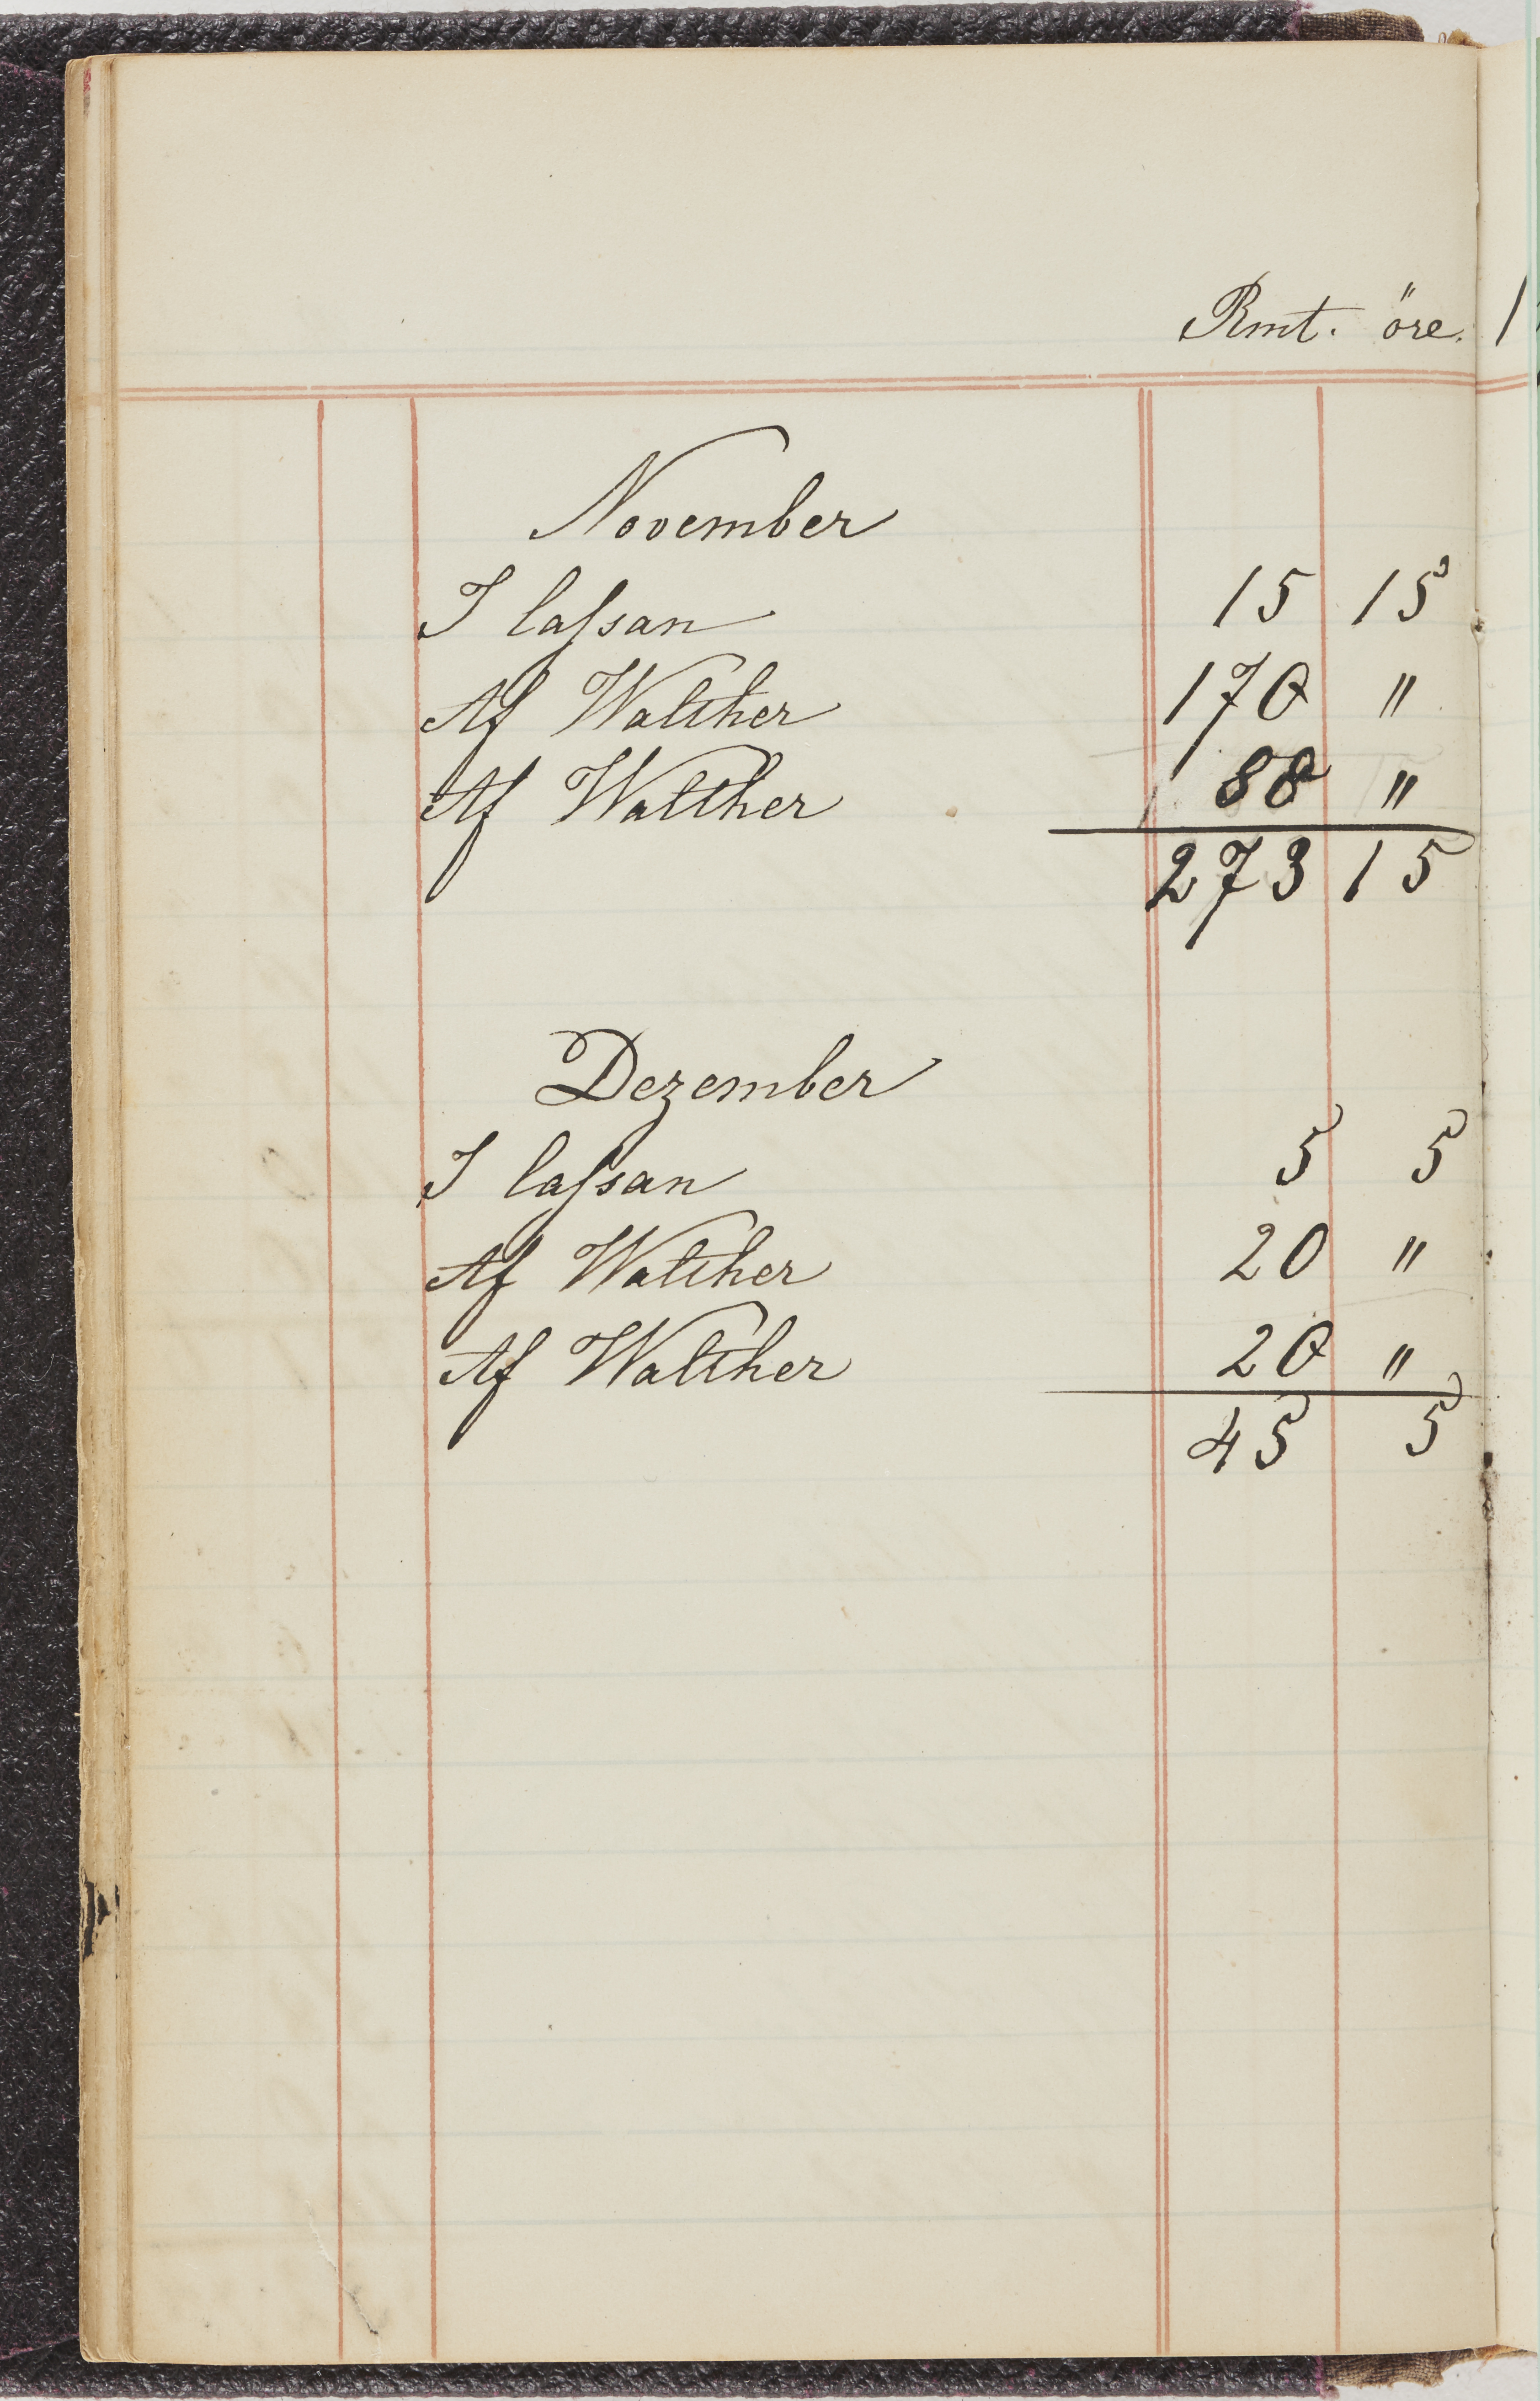 Rmt. öre.
November
I lassan 15 15
Af Walther 170 "
Af Walther 88 "
273 15
Dezember
I lassan 5 5
Af Walther 20 "
Af Walther 20 "
45 5